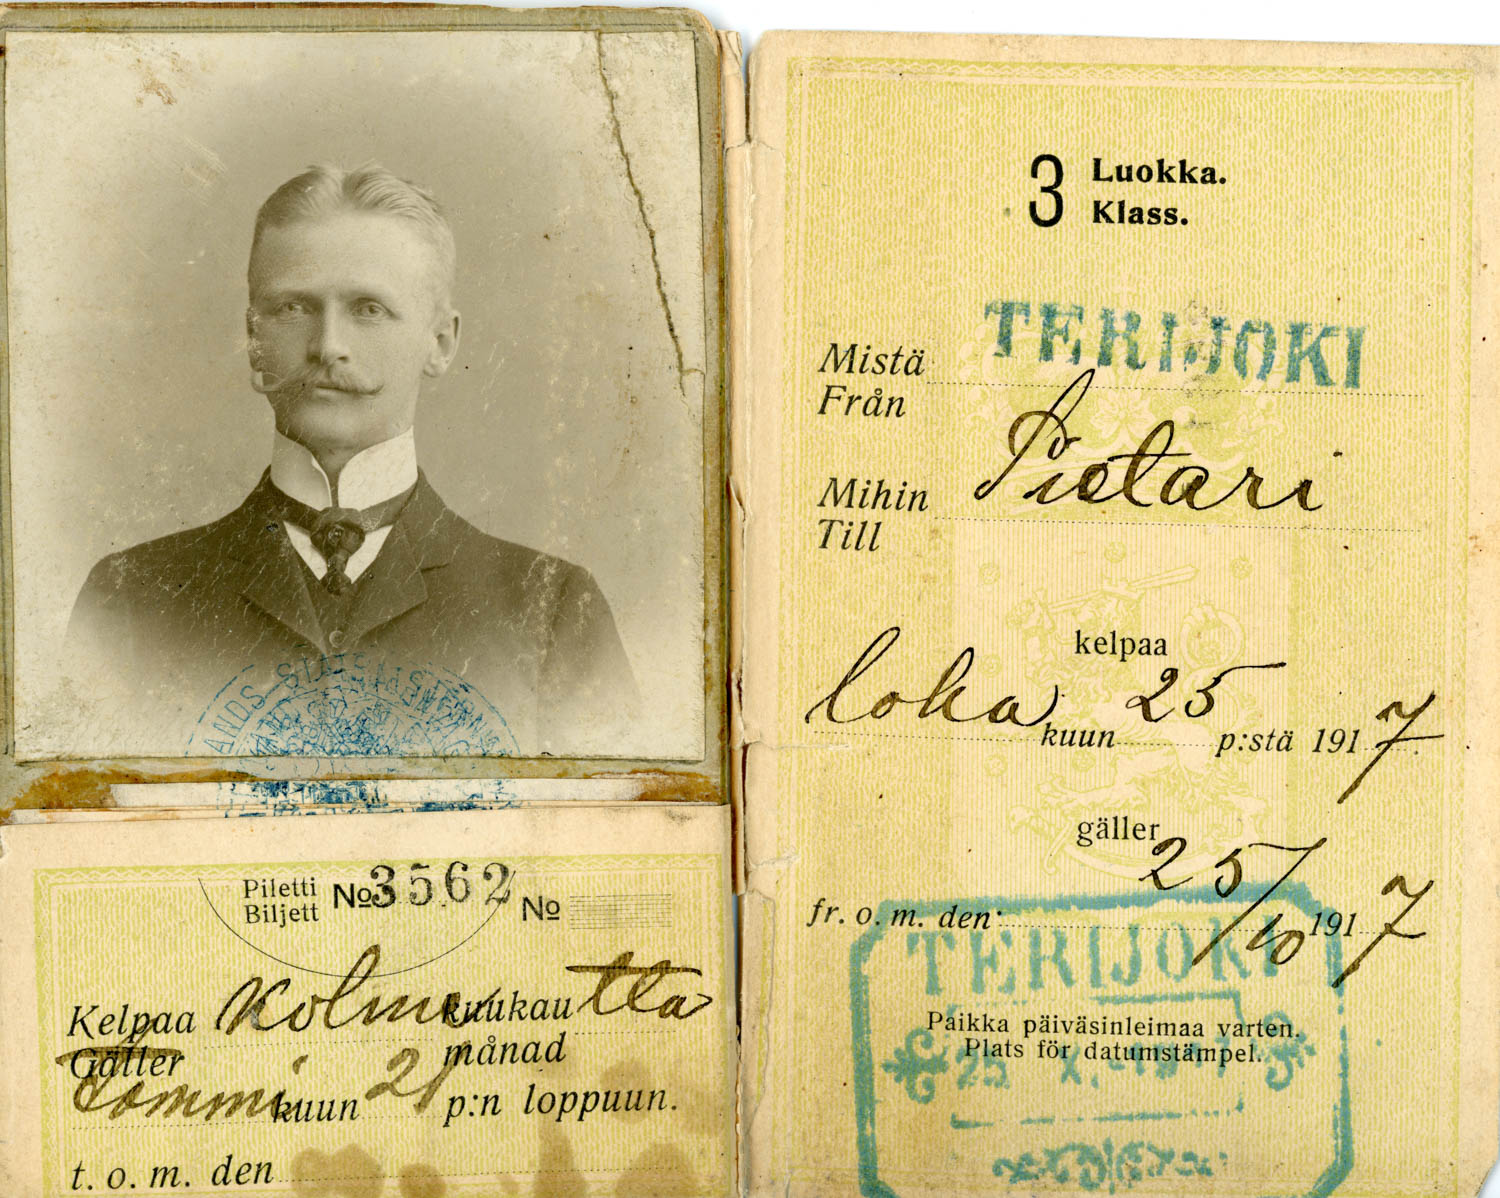 ANDS STATSJERNV
Piletti
Biljett
No 3562 No
Kelpaa Kolme kuukautta
Gäller månad
Tammikuun 21 p:n loppuun.
t. o. m. den
3 Luokka.
Klass.
Mistä TERIJOKI
Från
Mihin Pietari
Till
kelpaa
lokakuun 25 p:stä 1917
gäller
fr. o. m. den 25/10 1917
TERIJOKI
Paikka päiväsinleimaa varten.
Plats för datumstämpel.
25 X